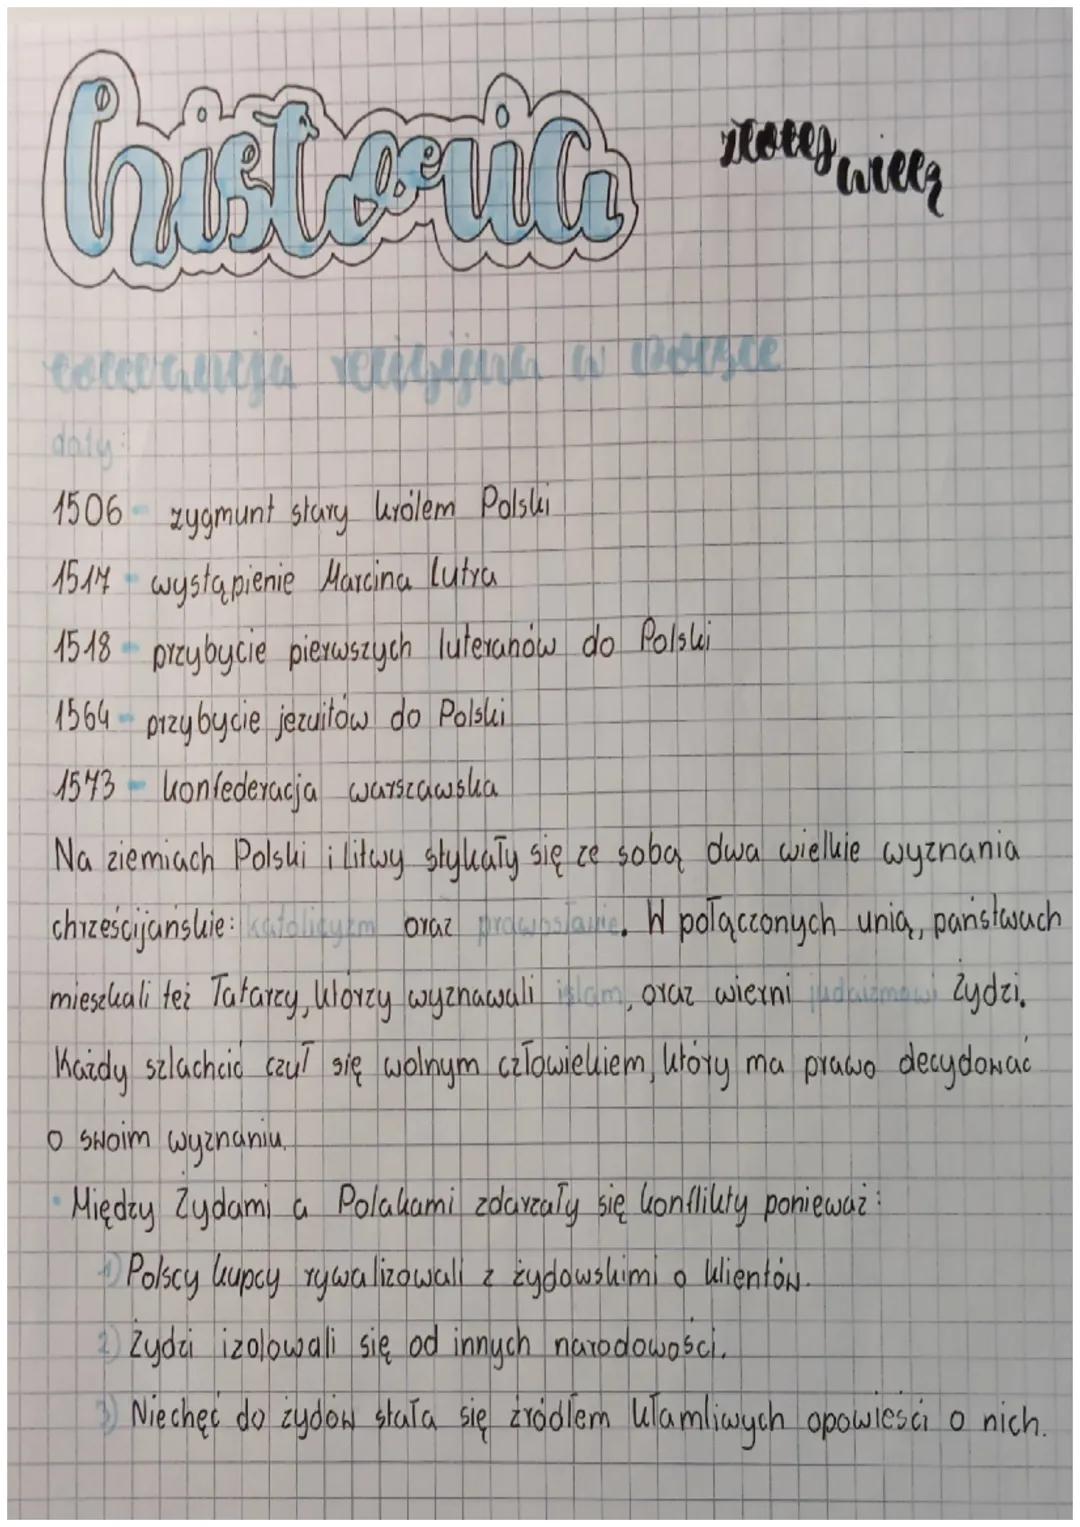 historia
złoty wiek
tolerancja religijna w Polsce
daty:
1506 - zygmunt stary królem Polski
1517 - wystąpienie Marcina lutra
1518 - przybycie pierwszych luteranów do Polski
1564 - przybycie jezuitów do Polski
1573 - konfederacja warszawska
Na ziemiach Polski i Litwy stykały się ze sobą dwa wielkie wyznania
chrześcijańskie: katolicyzm oraz prawosławie. W połączonych unią, państwach
mieszkali też Tatarzy, którzy wyznawali islam, oraz wierni judaizmowi Żydzi.
Każdy szlachcić czuł się wolnym człowiekiem, który ma prawo decydować
o swoim wyznaniu.
• Między Żydami a Polakami zdarzały się konflikty ponieważ:
1) Polscy kupcy rywalizowali z żydowskimi o klientów.
2) Żydzi izolowali się od innych narodowości.
3) Niechęć do żydów stała się źródłem kłamliwych opowieści o nich.